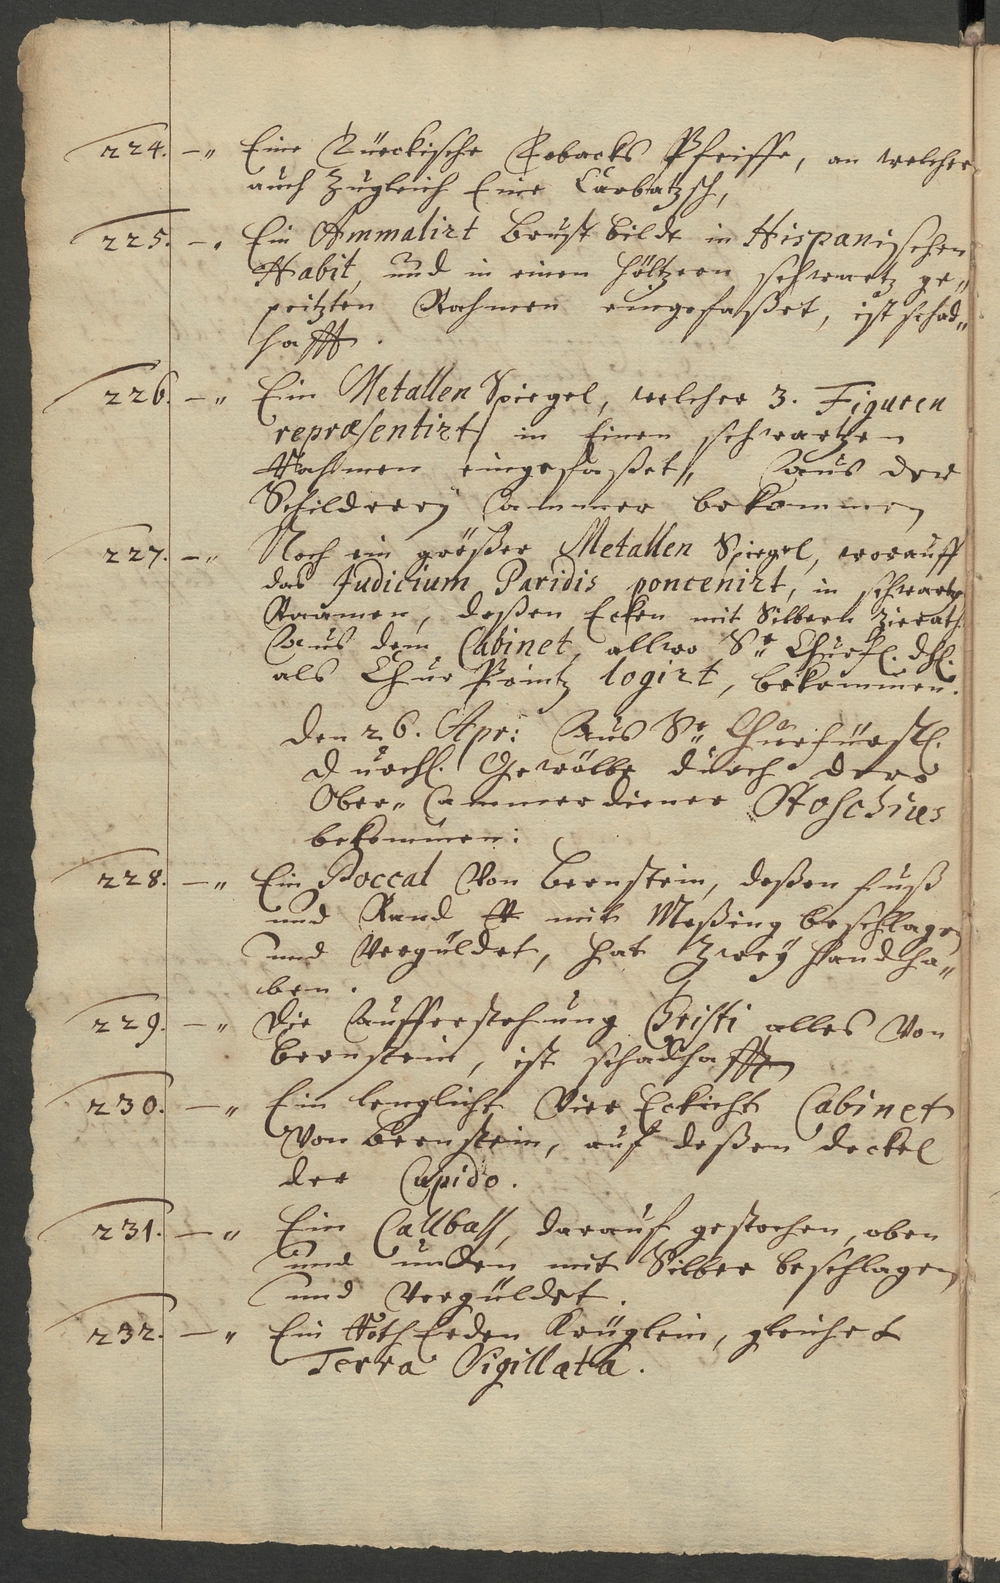 224. –„ Eine Türckische Tobacks Pfeiffe, an welcher
auch Zugleich Eine Carbatzsch,
225. –„ Ein Ammalirt Brust bildt in Hispanischen
Habit, und in einen höltzern schwartz ge„
peitzten Rahmen eingefaßet, ist schad„
hafft.
226. –„ Ein Metallen Spiegel, welcher 3. Figuren
repræsentirt, in Einen schwartzen
Rahmen eingefaßet, aus der
Schilderey Cammer bekommen
227. –„ Noch ein größer Metallen Spiegel, worauff
das Judicium Paridis poncenirt, in schwartz
Raamen, deßen Ecken mit Silbern Zierath.
Aus dem Cabinet, allwo Sr. Churfl. dhl.
als Chur Printz logirt, bekommen.
Den 26. Apr: Aus Sr. Churfürstl.
Durchl. Gewölbe durch dero
Ober„ Cammerdiener Stoschius
bekommen:
228. –„ Ein Poccal Von Bernstein, deßen fuß
und Rand mit Meßing beschlagen
und Vergüldet, hat Zwey Handha„
ben.
229. –„ Die Aufferstehung Christi alles Von
Bernstein, ist schadhafft
230. –„ Ein lenglicht Vier Eckicht Cabinet
Von Bernstein, auf deßen deckel
der Cupido.
231. –„ Ein Callbass, darauf gestochen, oben
und unden mit Silber beschlagen
und Vergüldet.
232. –„ Ein Roth Erden Krüglein, gleichet
Terra Sigillata.